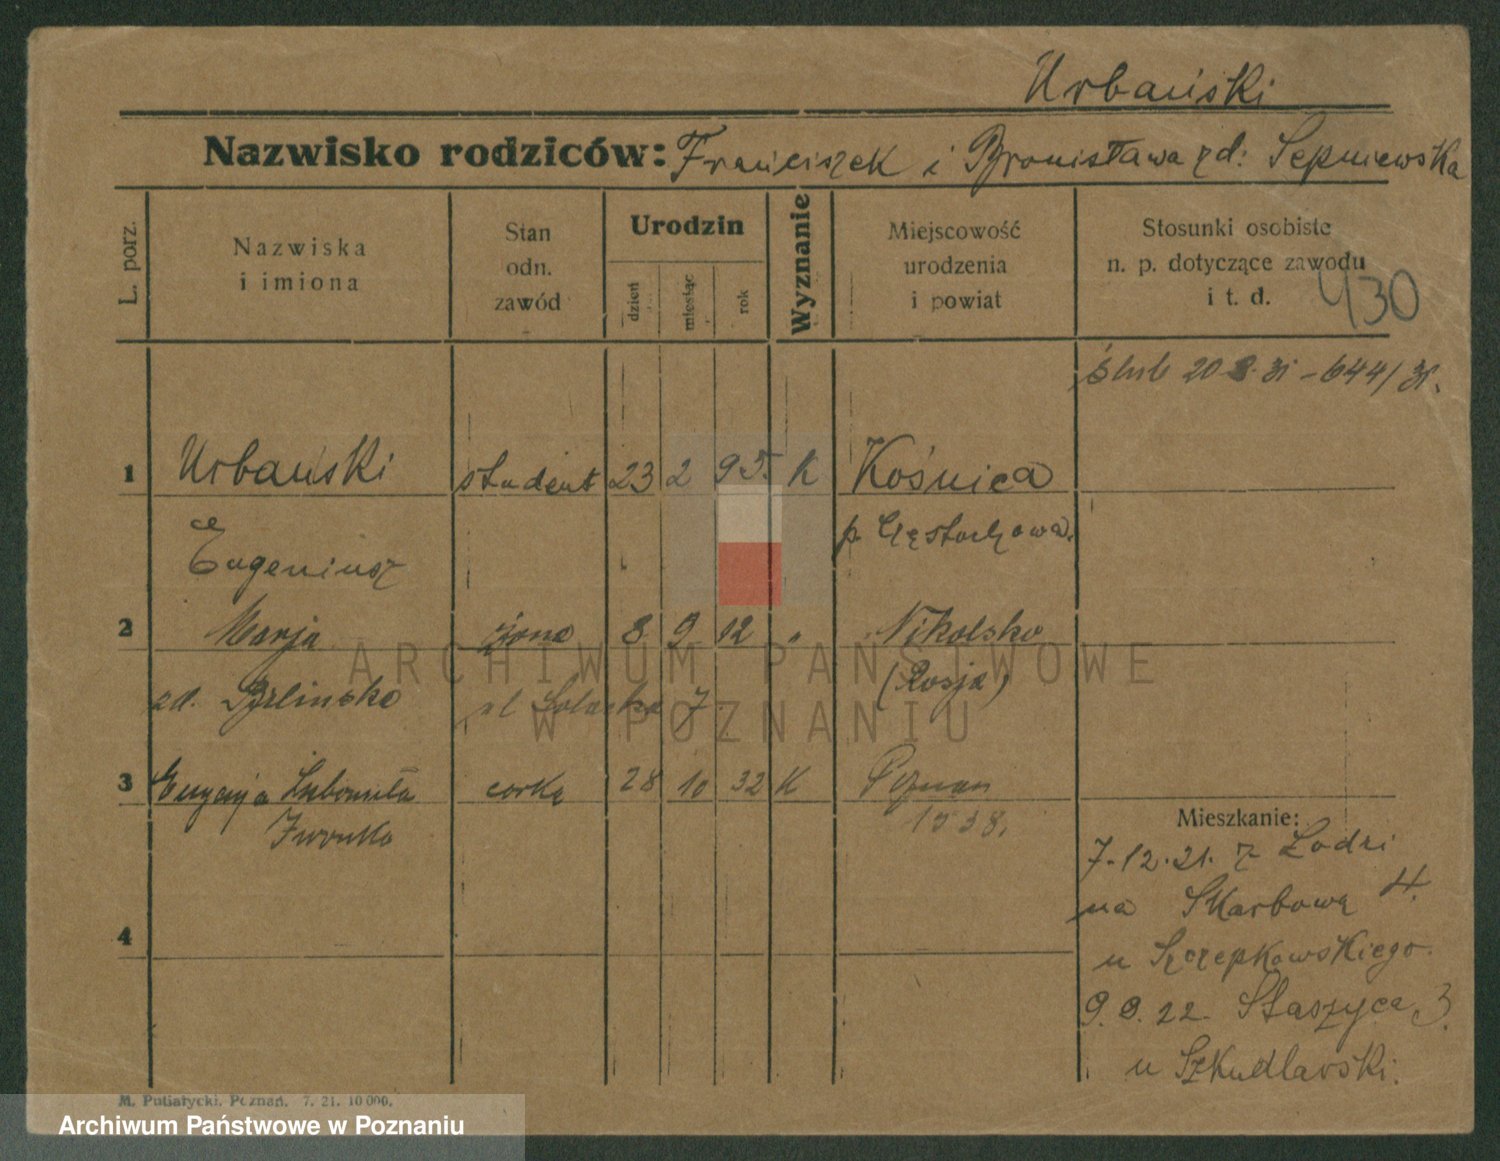 Urbański
Nazwisko rodziców: Franciszek i Bronisława zd: Sępniewska
L. porz.
Nazwiska
i imiona
Stan
odn.
zawód
Urodzin
dzień
miesiąc
rok
Wyznanie
Miejscowość
urodzenia
i powiat
Stosunki osobiste
n. p. dotyczące zawodu
i t. d.
430
ślub 20 8. 31 - 644/31.
1 Urbański student 23 2 95. K Kośnica
Eugeniusz p. Częstochowa.
2 Marja żona 8 9 12 " Nikolsko
zd. (Rosja)
ul 7
3 Eugenja Lubomiła córka 28 10 32 K Poznań
Iwonka 1938.
4
Mieszkanie:
7.12.21. z Łodzi
na Skarbową 4.
u Szczepkowskiego.
9.9.22. Staszyca 3.
u Szkudlarski.
M. Putiatycki, Poznań. 7. 21. 10000.
ARCHIWUM PAŃSTWOWE
W POZNANIU
Archiwum Państwowe w Poznaniu